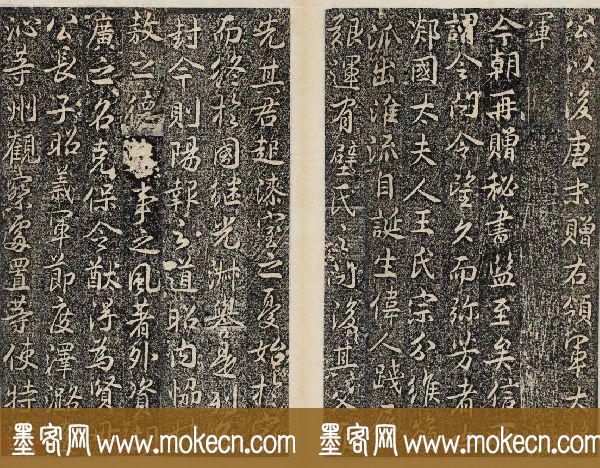 公以後唐末贈右領軍大
軍
今朝再贈秘書監至矣信
謂令問令望久而弥芳者
郯國太夫人王氏宗分維
派出淮流目誕生偉人踐
艱運有璧氏之後其
先其君起漆室之憂始於
而終於國继先是
封今則陽報之道昭内恊
敖之德事之風著外資
廣之名克保令猷得為賢
公長子昭義軍節度澤潞
沁等州觀察處置等使特
墨客网 www.mokecn.com 墨客网 www.mokecn.com